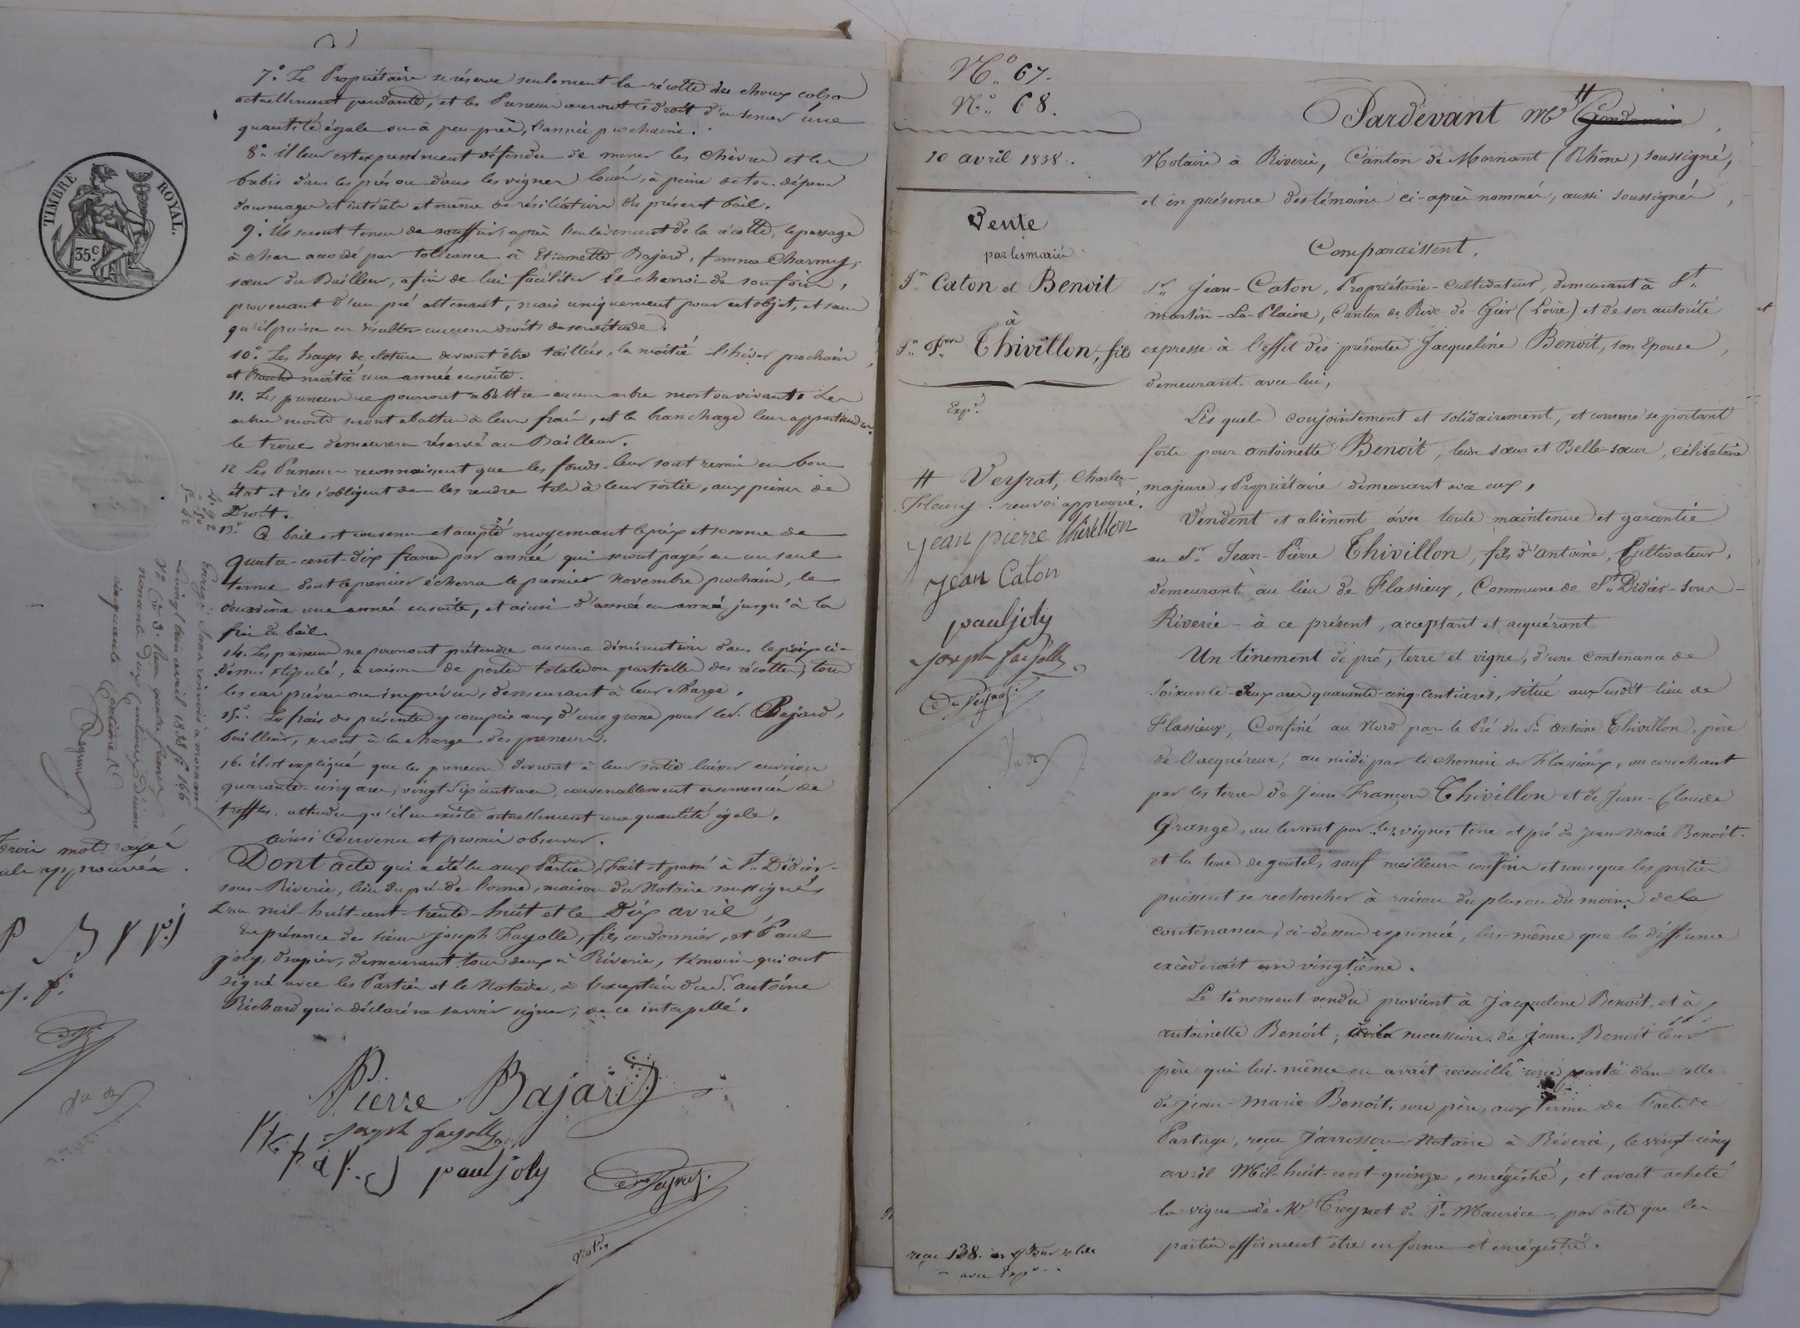 7.° Le Propriétaire se réserve seulement la récolte des choux colza
actuellement pendante, et les Preneurs auront le droit d'en semer une
quantité égale ou à peu près, l'année prochaine.
8.° il leur est expressément défendu de mener les chèvres et les
brebis dans les prés ou dans les vignes loués, à peine de tous dépens
dommages et intérêts et même de résiliation du présent bail.
9.° Ils seront tenus de souffrir, après l'enlèvement de la récolte, le passage
à char accordé par tolérance à Etiennette Bajard, femme Charmy,
sœur du Bailleur, afin de lui faciliter le charroi de son foin,
provenant d'un pré attenant, mais uniquement pour cet objet, et sans
qu'il puisse en résulter aucuns droits de servitude.
10.° Les hayes de cloture devront être taillées, la moitié l'hiver prochain,
et moitié une année ensuite.
11. Les preneurs ne pourront abattre aucun arbre mort ou vivant. Les
arbres morts seront abattus à leur frais, et le branchage leur appartiendra
le tronc demeurera réservé au Bailleur.
12 Les Preneurs reconnaissent que les fonds leur sont remis en bon
état et ils s'obligent de les rendre tels à leur sortie, aux peines de
Droit.
13.° Ce bail est consenu et accepté moyennant le prix et somme de
quatre-cent-dix francs par année qui seront payés en un seul
terme dont le premier écherra le premier Novembre prochain, le
deuxième une année ensuite, et ainsi d'année en année jusqu'à la
fin du bail.
14. Les preneurs ne pourront prétendre aucune diminution dans le prix ci-
dessus stipulé, à raison de perte totale ou partielle des récoltes, tous
les cas prévus ou imprévus, demeurant à leur charge.
15.° Les frais des présentes y compris ceux d'une grosse pour le s.r Bajard,
bailleur, seront à la charge des preneurs.
16. il est expliqué que les preneurs devront à leur sortie laisser environ
quarante-cinq ares, vingt-six centiares, convenablement ensemencés de
treffles, attendu qu'il en existe actuellement une quantité égale.
ainsi Convenu et promis observer.
Dont acte qui a été lu aux Parties, Fait et passé à S.t Didier-
sous-Riverie, lieu du pré-de l'orme, maison du Notaire soussigné,
L'an mil-huit-cent-trente-huit et le Dix avril
En présence des sieurs Joseph Fayolle, fils, cordonnier, et Paul
joly, drapier, demeurant tous deux à Riverie, témoins qui ont
signé avec les Parties et le Notaire, à l'exception du s.r antoine
Richard qui a déclaré ne savoir signer, de ce interpellé.
Pierre Bajard
joseph fayolle
paul joly
TIMBRE ROYAL.
35 c
Trois mots rayés
nuls approuvés.
N.° 67.
N.° 68.
10 avril 1838.
Vente
par les mariés
J.n Caton et Benoit
à
J.n P.rre Thivillon, fils
Exp.é
# Veyrat, Charles-
Fleury. renvoi approuvé.
jean pierre thivillon
jean Caton
paul joly
joseph fayolle
Pardevant M.e #
Notaire à Riverie, Canton de Mornant (Rhône) soussigné,
et en présence des témoins ci-après nommés, aussi soussignés,
Comparaissent,
S.r Jean-Caton, Propriétaire-cultivateur, demeurant à S.t
martin-La-Plaine, Canton de Rive-de-Gier (Loire) et de son autorité
expresse à l'effet des présentes Jacqueline Benoit, son Epouse,
demeurant avec lui,
Lesquels conjointement et solidairement, et comme se portant
forts pour antoinette Benoit, leur sœur et Belle-sœur, célibataire
majeure, Propriétaire demeurant avec eux,
Vendent et aliènent avec toute maintenue et garantie
au S.r Jean-Pierre Thivillon, fils d'antoine, Cultivateur,
demeurant au lieu de Flassieux, Commune de S.t Didier-sous-
Riverie - à ce présent, acceptant et acquérant
Un tènement de pré, terre et vigne, d'une contenance de
soixante-deux ares quarante-cinq centiares, situé aux susdit lieu de
Flassieux, Confiné au Nord par le Pré du S.r antoine Thivillon, père
de l'acquéreur, au midi par le chemin de Flassieux, au couchant
par les terres de Jean-François Thivillon et de Jean-Claude
Grange, au levant par les vignes terre et pré de Jean-Marie Benoit.
et la terre de goutel, sauf meilleurs confins et sans que les parties
puissent se rechercher à raison du plus ou du moins de la
contenance, ci-dessus exprimée, lors-même que la différence
excèderait un vingtième.
Le tènement vendu provient à Jacqueline Benoit, et à
antoinette Benoit; de la succession de Jean Benoit leur
père qui lui-même en avait recueilli une partie dans celle
de Jean-Marie Benoit, son père, aux termes de l'acte de
Partage, reçu Jarrosson Notaire à Riverie, le vingt-cinq
avril Mil-huit-cent-quinze, enrégistré, et avait acheté
la vigne de M.r Treynet de S.t Maurice, par acte que les
parties affirment être en forme et enrégistré.